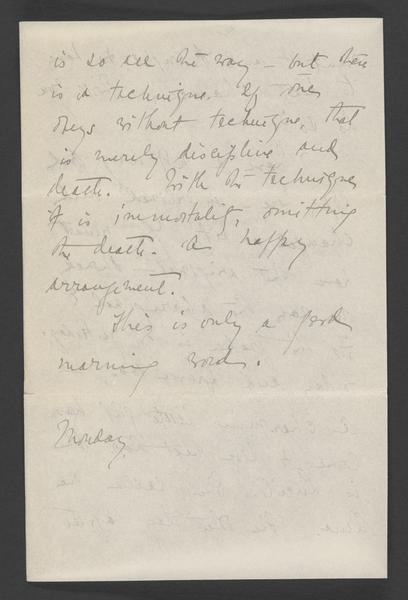 is so all the way - but there
is a technique. If one
obeys without technique, that
is merely discipline and
death. With the technique
it is immortality, omitting
the death. A happy
arrangement.
This is only a good
morning word.
Monday.